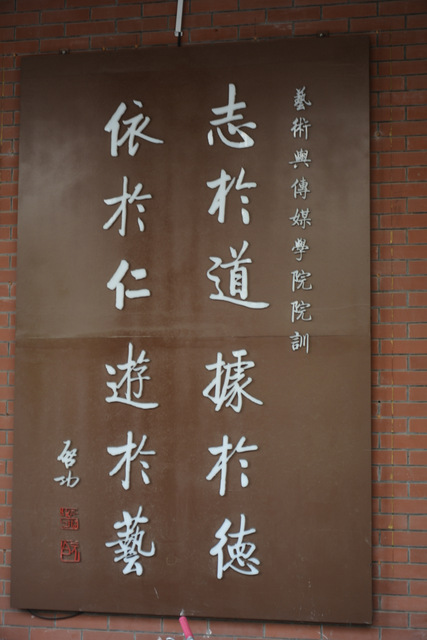 藝術與傳媒學院院訓
志於道據於德
依於仁遊於藝
啟功